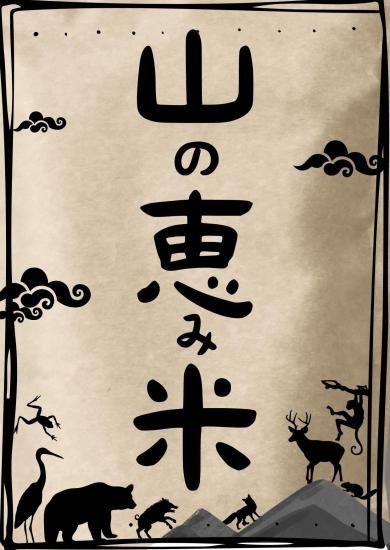 山の恵み米